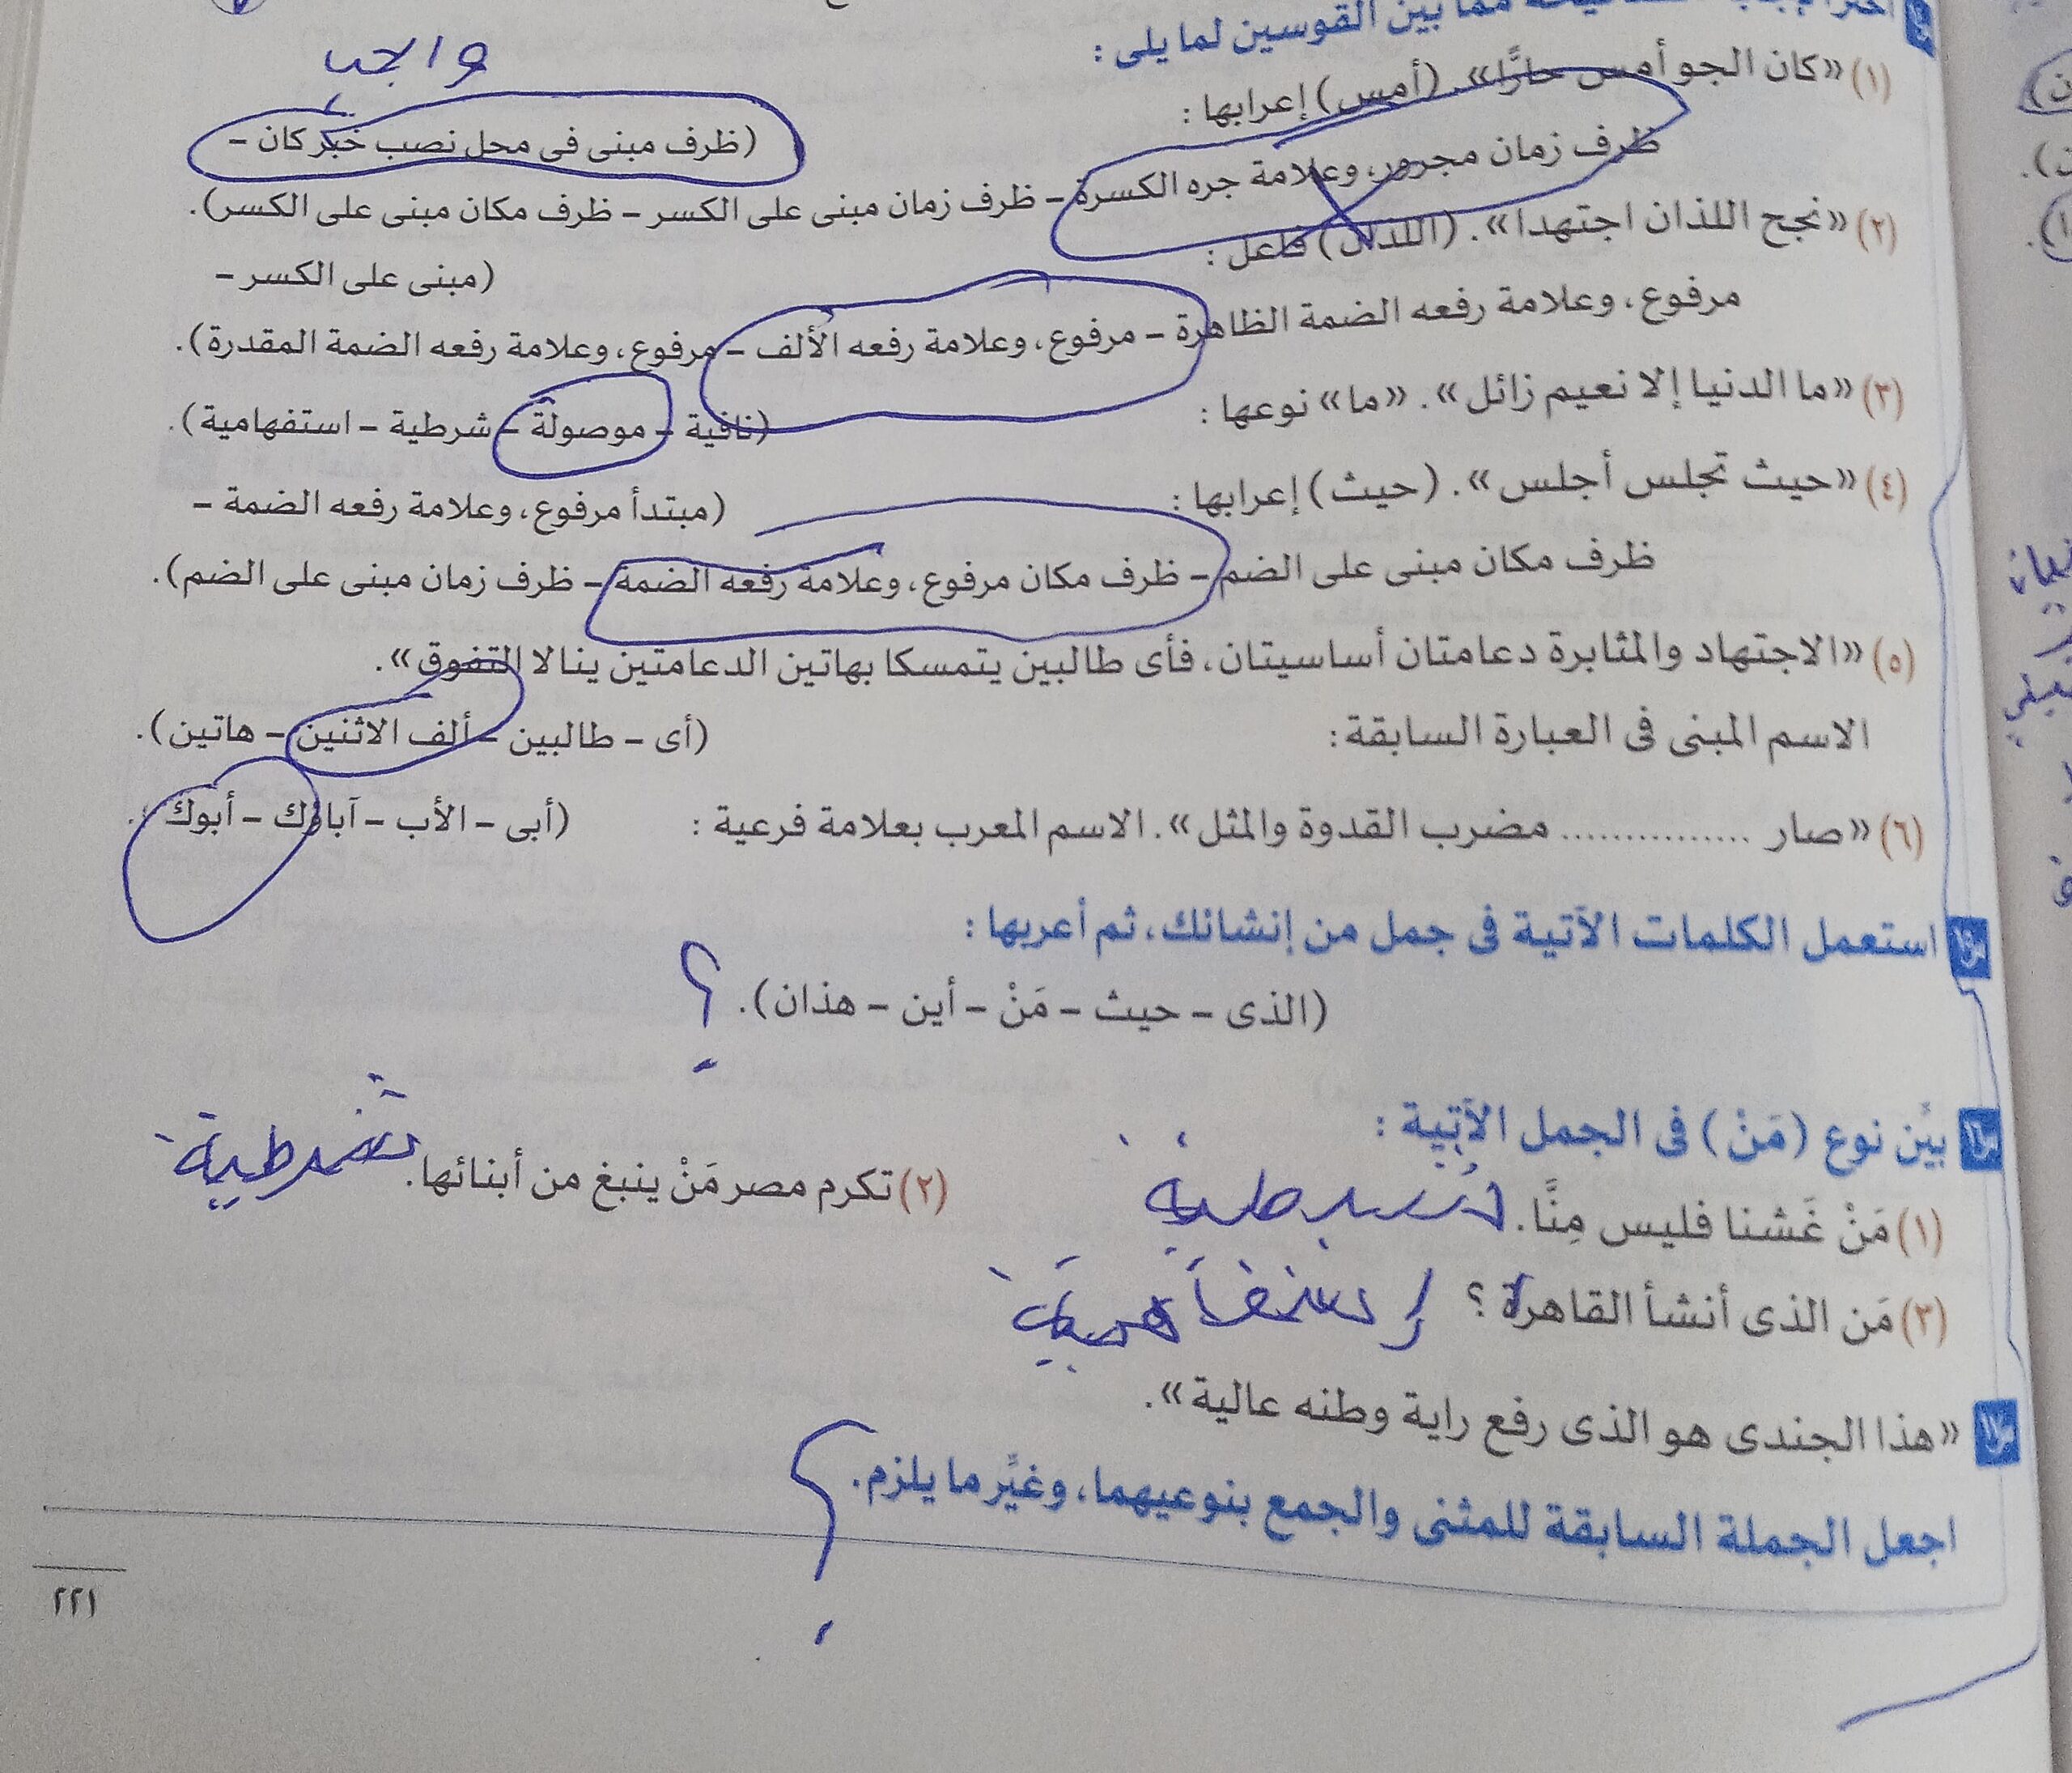 مما بين القوسين لما يلى :
واجب
(١) «كان الجو أمس حارًّا». (أمس) إعرابها :
(ظرف مبنى فى محل نصب خبر كان –
ظرف زمان مجرور، وعلامة جره الكسرة – ظرف زمان مبنى على الكسر – ظرف مكان مبنى على الكسر).
(٢) «نجح اللذان اجتهدا». (اللذان) فاعل :
(مبنى على الكسر –
مرفوع، وعلامة رفعه الضمة الظاهرة – مرفوع، وعلامة رفعه الألف – مرفوع، وعلامة رفعه الضمة المقدرة).
(٣) «ما الدنيا إلا نعيم زائل». «ما» نوعها : (نافية – موصولة – شرطية – استفهامية).
(٤) «حيث تجلس أجلس». (حيث) إعرابها : (مبتدأ مرفوع، وعلامة رفعه الضمة –
ظرف مكان مبنى على الضم – ظرف مكان مرفوع، وعلامة رفعه الضمة – ظرف زمان مبنى على الضم).
(٥) «الاجتهاد والمثابرة دعامتان أساسيتان، فأى طالبين يتمسكا بهاتين الدعامتين ينالا التفوق».
الاسم المبنى فى العبارة السابقة: (أى – طالبين – ألف الاثنين – هاتين).
(٦) «صار ............... مضرب القدوة والمثل». الاسم المعرب بعلامة فرعية : (أبى – الأب – آباؤك – أبوك).
س١٠ استعمل الكلمات الآتية فى جمل من إنشائك، ثم أعربها :
(الذى – حيث – مَنْ – أين – هذان). ؟
س١١ بيِّن نوع (مَنْ) فى الجمل الآتية :
(١) مَنْ غَشنا فليس مِنَّا. شرطية
(٢) تكرم مصر مَنْ ينبغ من أبنائها. شرطية
(٣) مَن الذى أنشأ القاهرة ؟ إستفهامية
س١٢ «هذا الجندى هو الذى رفع راية وطنه عالية».
اجعل الجملة السابقة للمثنى والجمع بنوعيهما، وغيِّر ما يلزم. ؟
٢٢١